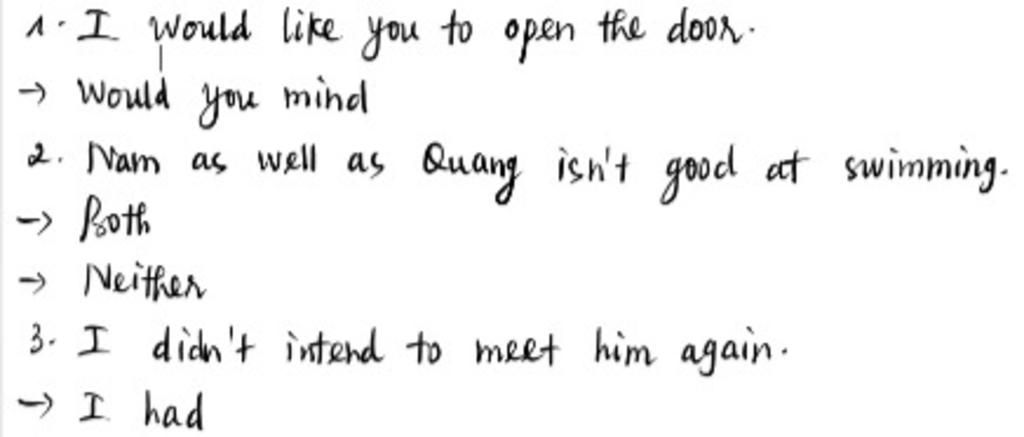 1. I would like you to open the door.
→ Would you mind
2. Nam as well as Quang isn't good at swimming.
→ Both
→ Neither
3. I didn't intend to meet him again.
→ I had